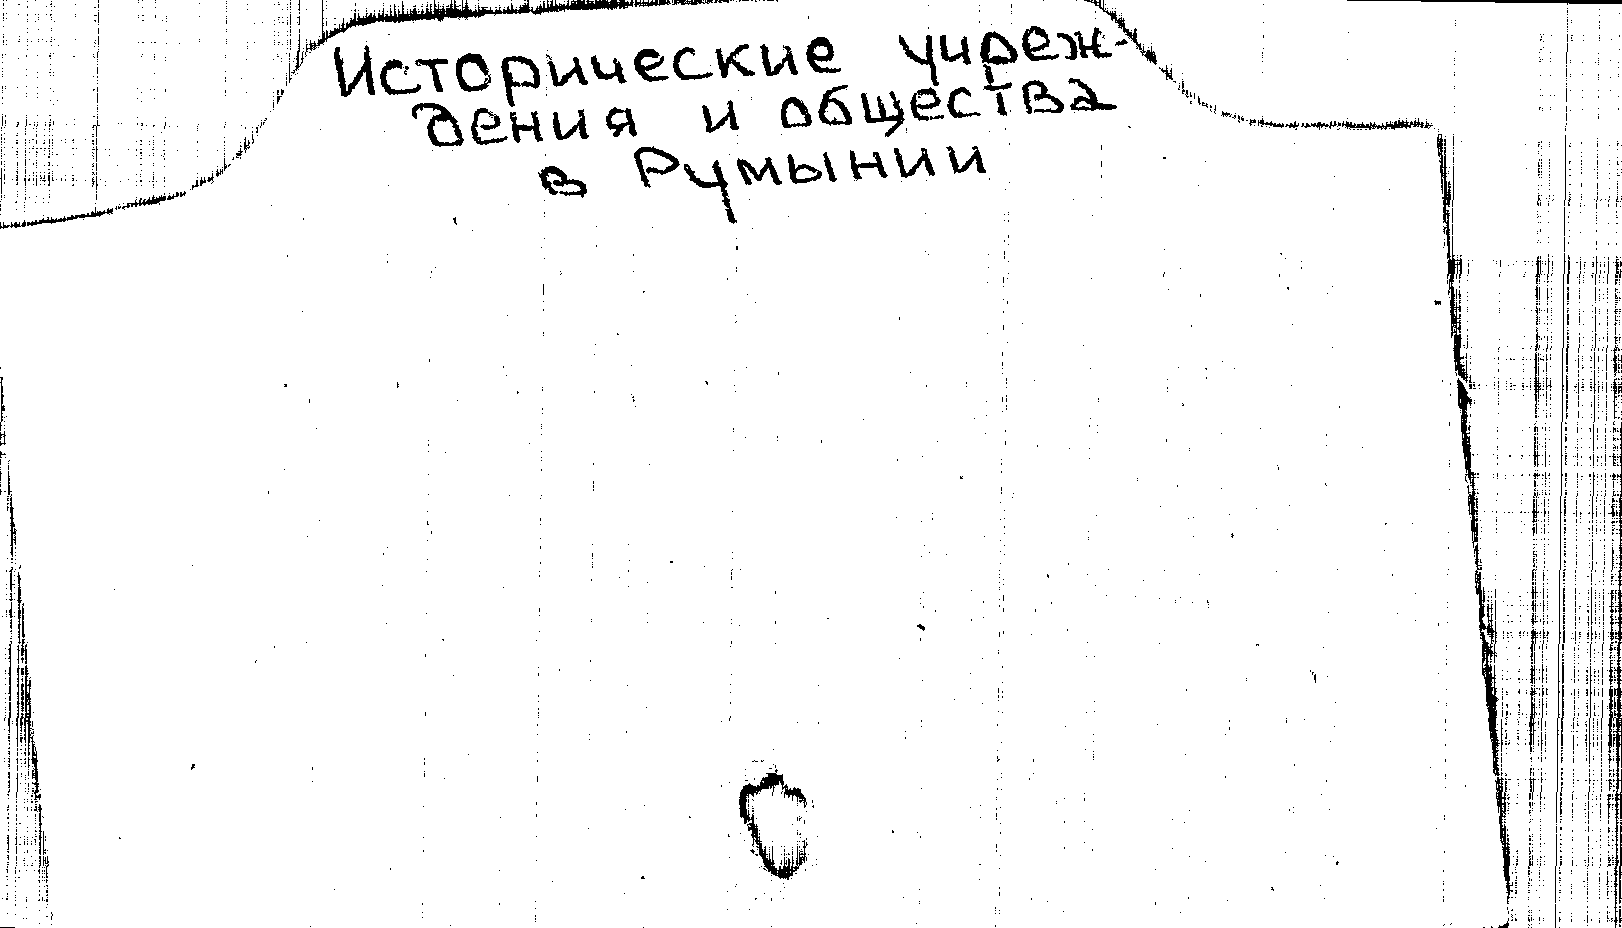 Исторические учреж-
дения и общества
в Румынии